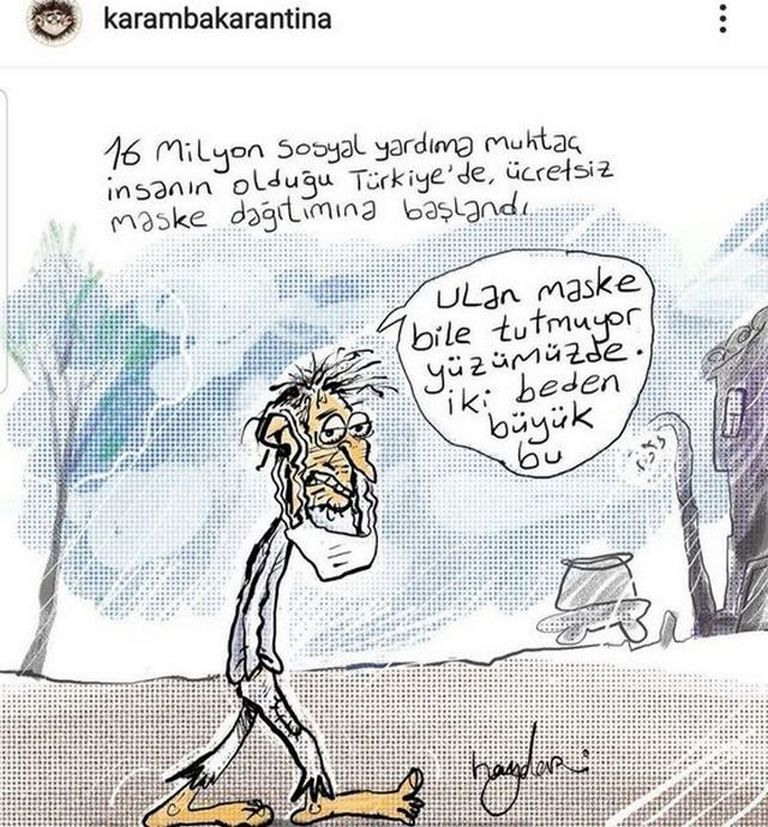 karambakarantina
16 Milyon sosyal yardıma muhtaç
insanın olduğu Türkiye'de, ücretsiz
maske dağıtımına başlandı
Ulan maske
bile tutmuyor
yüzümüzde.
iki beden
büyük
bu